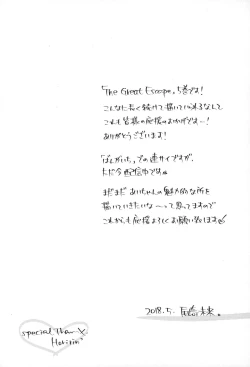 「The Great Escape」5巻です!
こんなに長く続けて描いていられるなんて
これも皆様の応援のおかげです…!
ありがとうございます!
ただ今配信中です。
まだまだ あいちゃんの魅力的な所を
描いていきたいな〜って思ってますので
これからも応援よろしくお願い致します
2018.5.
special thanx
Horirin